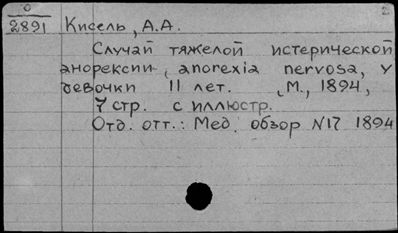 О
2
2891 Кисель, А.А.
Случай тяжелой истерической
анорексии, anorexia nervosa, у
девочки 11 лет. М., 1894,
7 стр. с иллюстр.
Отд. отт.: Мед. обзор N17 1894